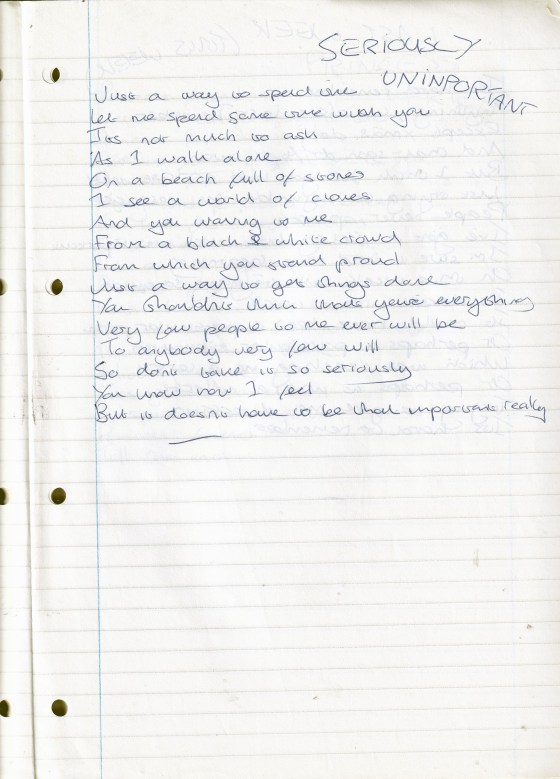 SERIOUSLY
UNINPORTANT
Just a way to spend time
Let me spend some time with you
Its not much to ask
As I walk alone
On a beach full of stones
I see a world of clones
And you waving to me
From a black & white crowd
From which you stand proud
Just a way to get things done
You shouldn't think that you're everything
Very few people to me ever will be
To anybody very few will
So don't take it so seriously
You know how I feel
But it doesn't have to be that important really